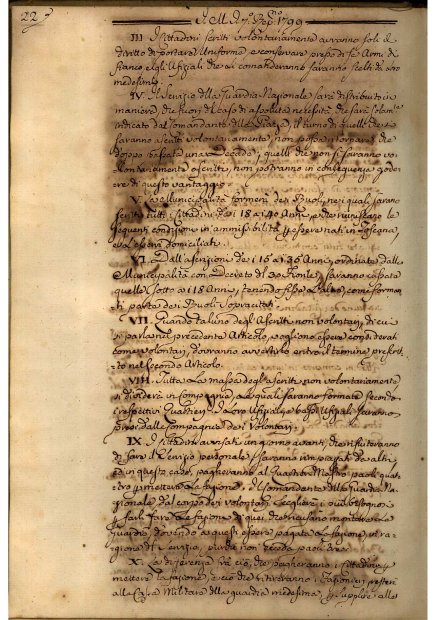 22
1799
III. I Cittadini scritti volontariamente avranno soli il
diritto di portare l'Uniforme e conservare presso di se l'Armi di
fianco, e gli Uffiziali che li comanderanno saranno scelti da
medesimi.
IV. Il Servizio della Guardia Nazionale sarà distribuito in
maniera, che fuori del caso di assoluta necessità che sarà
indicato dal Comandante della Piazza, il turno di quelli che si
saranno scritti volontariamente, non possa ritornare che
doppo passata una Decade; quelli che non si saranno vo-
lontariamente ascritti, non potranno in conseguenza gode-
re di questo vantaggio.
V. Le Municipalità formeranno dei Ruoli, nei quali saranno
scritti tutti i Cittadini dai 18 ai 40 Anni, che riuniscano le
seguenti condizioni in ammissibilità essere nati in Toscana,
ed essersi domiciliati.
VI. Dall' ascrizione dei 16 ai 36 Anni, ordinata dalle
Municipalità con Decreto del 30 saranno
quelle sotto ai 18 Anni, tenendo fisso l'altro, come forman-
ti parte dei Ruoli sopracitati.
VII. Quando taluno degl' Ascritti non volontari, di cui
si parla nel precedente Articolo, vogliono essere considerati
come volontari, dovranno avvertirlo entro il termine prescrit-
to nel secondo Articolo.
VIII. Tutta la massa degl' ascritti non volontariamente
si dividerà in Compagnie, le quali saranno formate secondo
i respettivi Quartieri. I loro Uffiziali e bassi Uffiziali saranno
presi dalle Compagnie dei Volontari.
IX. I Cittadini avvisati un giorno avanti, che rifiuteranno
di fare il servizio personale, saranno rimpiazzati da altri,
ed in questo caso, pagheranno al Quartier Mastro paoli quat-
tro ammettere la fazione. Il Comandante della Guardia Na-
zionale dal corpo dei volontari sceglierà i più bisognosi
per farli fare la fazione di quei che ricusano montare la
guardia, dovendo a questi essere pagata la fazione in ra-
gione di servizio, purché non ecceda paoli tre.
X. La differenza tra ciò, che pagheranno i Cittadini per
mettere la fazione, e ciò che si tireranno i Fazionieri resterà
alla Cassa Militare della guardia medesima, per supplire alle